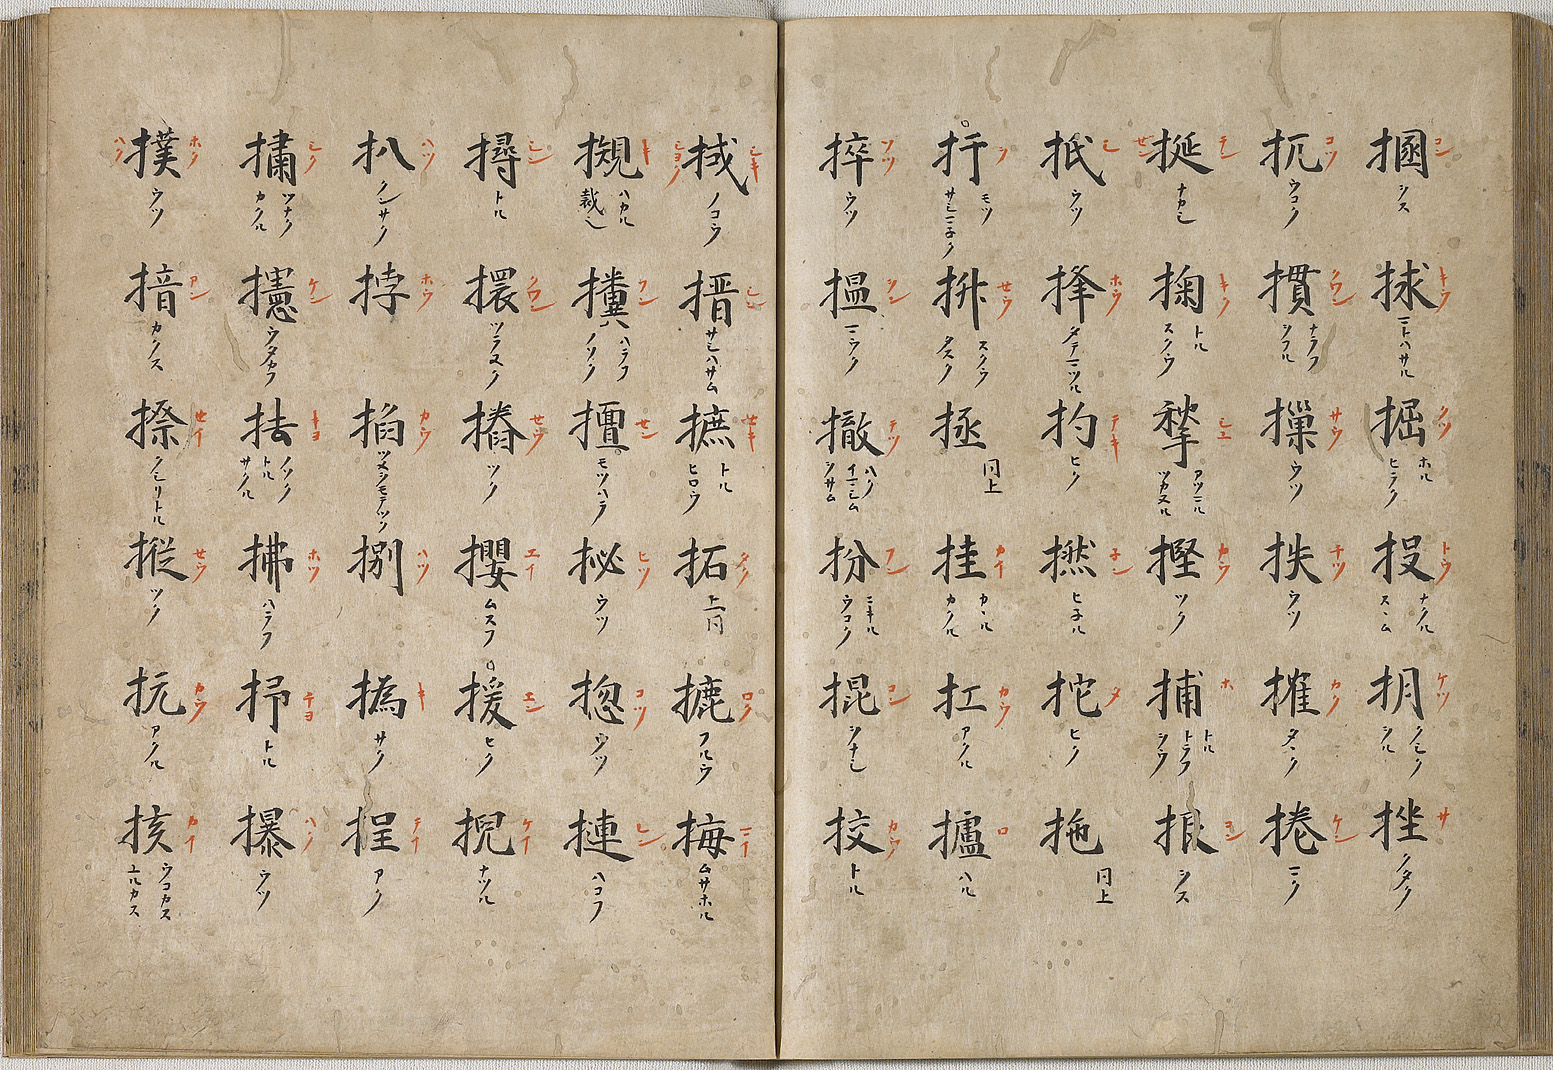 コン シス 捄 キウ ニトハサル 掘 クツ ホル ヒラク 投 トウ ナクル スヽム 抈 ケツ クシク シル 挫 サ クタク
扤 コツ ウコク 摜 クワン ナラフ シフル 摷 サウ ウツ 抶 チツ ウツ 搉 カク タヽク 捲 ケン ニク
挻 テン セン ナカシ 掬 キク トル スクウ 揫 シユ アツマル ツカヌル 摼 カウ ツク 捕 ホ トル トラフ シウ 拫 コン シス
扺 シ ウツ 捀 ホウ タテマツル 扚 テキ ヒク 撚 ネン ヒネル 拕 タ ヒク 拖 同上
モツ サシマネク 抍 セウ スクウ タスク 拯 同上 挂 カイ カヽル カクル 扛 カウ アクル 攎 ロ ハル
捽 ソツ ウツ 揾 撤 テツ ハク イマシム シサム 扮 フン ニキル ウコク 掍 コン ヲナシ 挍 カウ トル
掝 シキ ノコウ 搢 シン サシハサム 摭 セキ トル ヒロウ 拓 タク 上同 摝 ロク フルウ 挴 ニイ ムサホル
摫 キ ハカル 裁也 フン ハラフ ノソク 擅 セン モツハラ 㧙 ヒツ ウツ 揔 コツ ウツ 摙 レン ハコフ
撏 シン トル 擐 クワン ツラヌク 摏 セウ ツク 攖 エイ ムスフ 援 エン ヒク 掜 ケイ ナツル
扒 ハツ クンサク 挬 ホウ 掐 カウ ツメシモテツク 捌 ハツ 撝 キ サク 挰 テイ アク
シク ツナク カクル 攇 ケン ウタカフ 抾 キヨ ノソク トル サクル 拂 ホツ ハラフ 抒 チヨ トル ハク ウツ
撲 ホク ハク ウツ 揞 アン カクス 㨓 セイ クシリトル 摐 セウ ツク 抗 カウ アクル 㧡 カイ ウコカス ユルカス